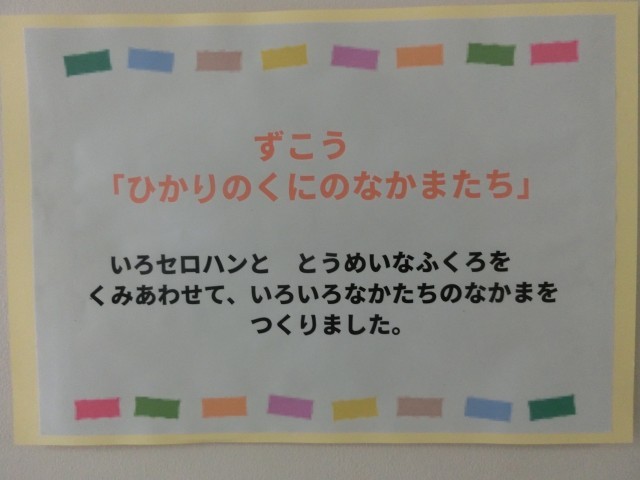 ずこう
「ひかりのくにのなかまたち」
いろセロハンと　とうめいなふくろを
くみあわせて、いろいろなかたちのなかまを
つくりました。